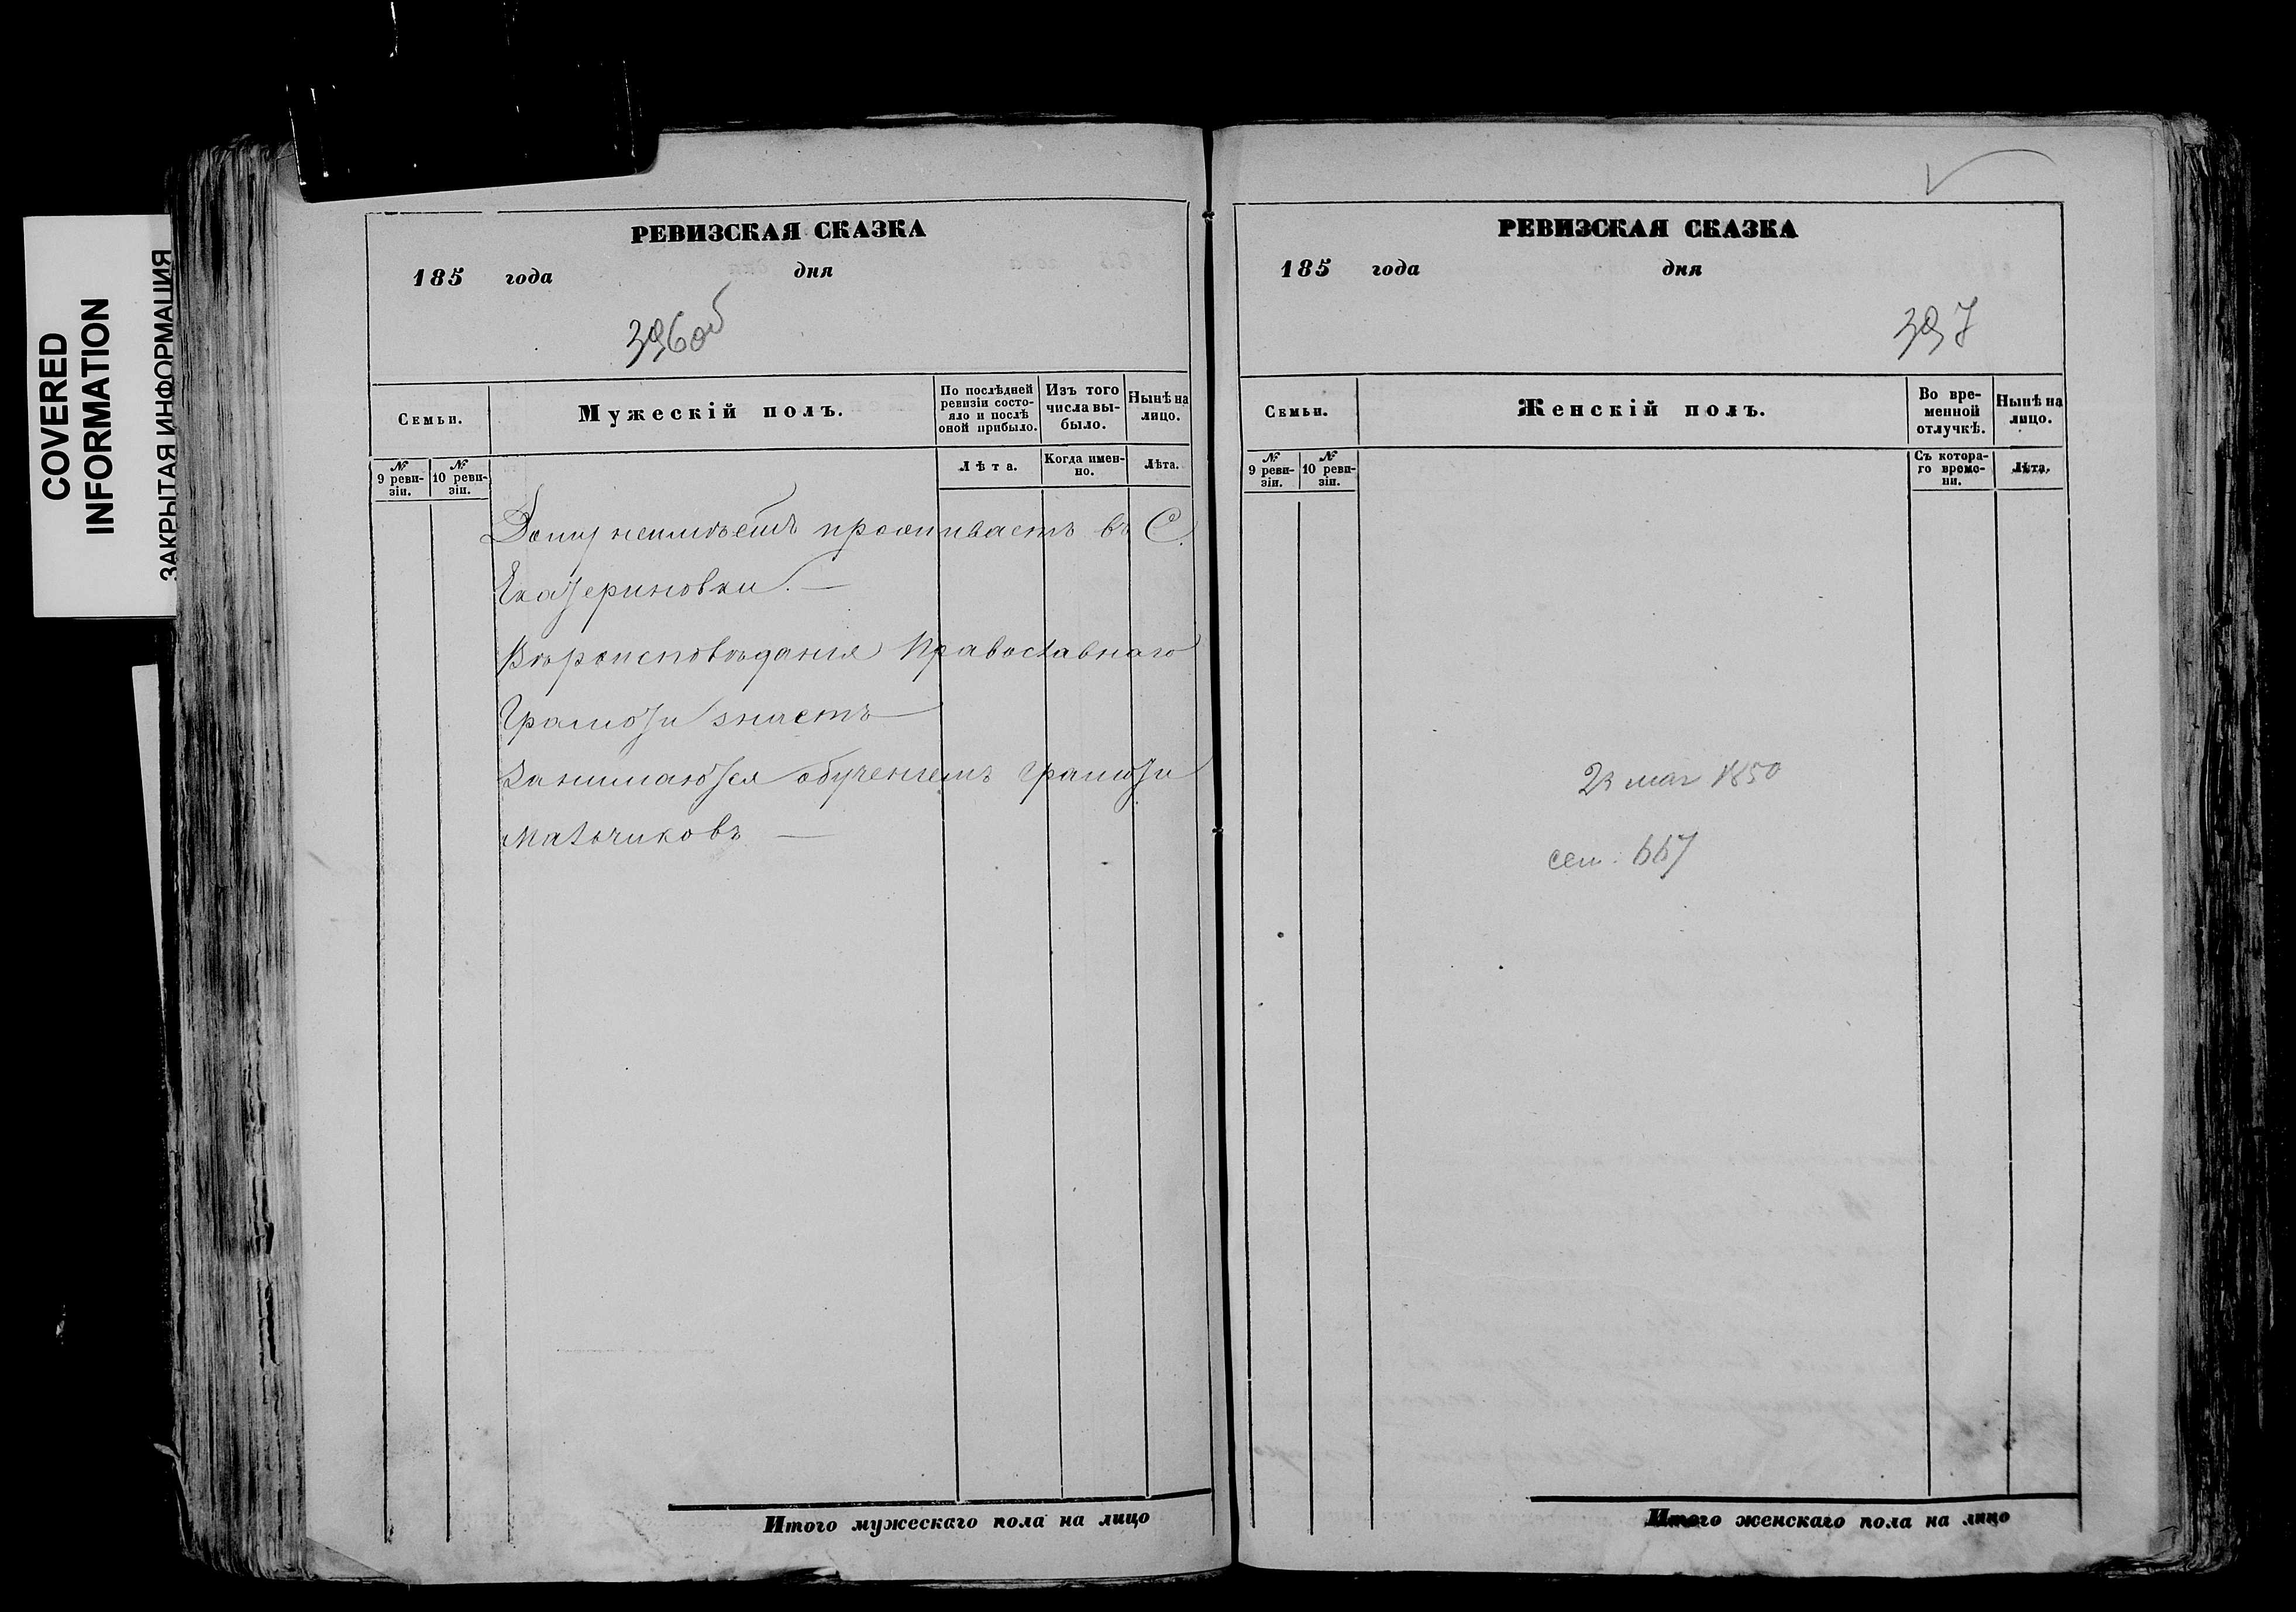 COVERED
INFORMATION
ЗАКРЫТАЯ ИНФОРМАЦИЯ
РЕВИЗСКАЯ СКАЗКА
185 года дня
396 об
Семьи.
Мужескій полъ.
По послѣдней ревизіи состояло и послѣ оной прибыло.
Изъ того числа выбыло.
Нынѣ на лицо.
№ 9 ревизіи.
№ 10 ревизіи.
Лѣта.
Когда именно.
Лѣта.
Дому неимѣетъ проживаетъ въ С.
Екатериновки. —
Вѣроисповѣданія Православнаго
Грамоти знаетъ —
Занимаются обученіемъ грамоти
Мальчиковъ —
Итого мужескаго пола на лицо
РЕВИЗСКАЯ СКАЗКА
185 года дня
397
Семьи.
Женскій полъ.
Во временной отлучкѣ.
Нынѣ на лицо.
№ 9 ревизіи.
№ 10 ревизіи.
Съ котораго времени.
Лѣта.
1850
сем.
Итого женскаго пола на лицо